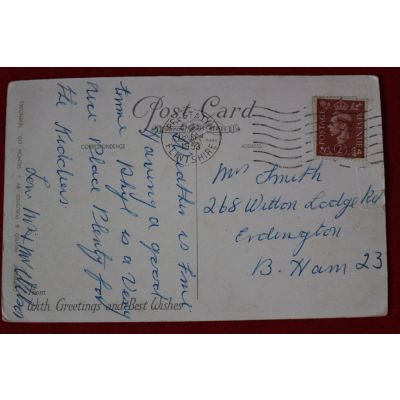 Post Card
CORRESPONDENCE
ADDRESS
FLINTSHIRE
POSTAGE
REVENUE
Weather is fine
Having a good
time Rhyl is a very
nice Place Plenty for
the Kiddies.
Love
Mrs Smith
268 Witton Lodge Rd
Erdington
B. Ham 23
From
With Greetings and Best Wishes